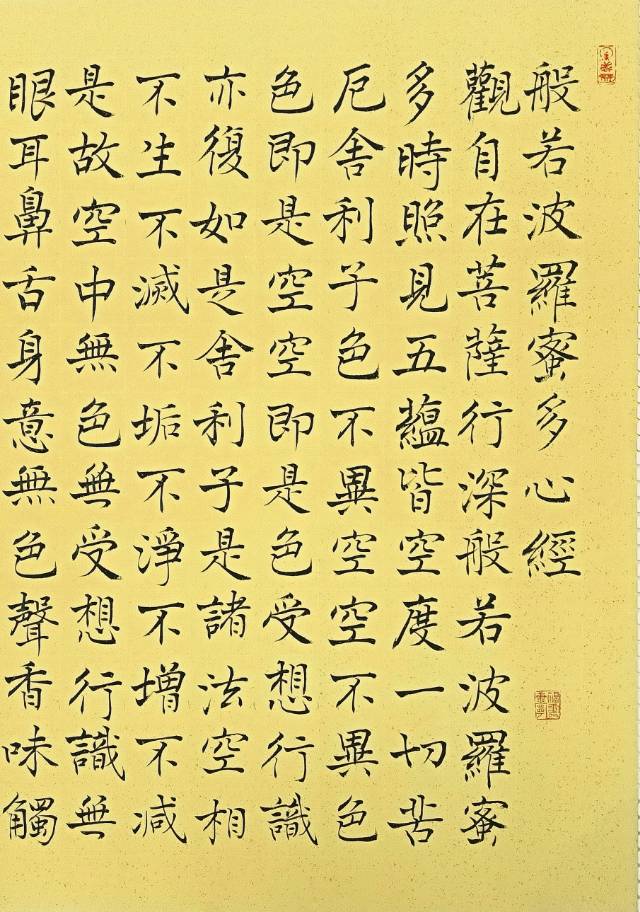 般若波羅蜜多心經
觀自在菩薩行深般若波羅蜜
多時照見五蘊皆空度一切苦
厄舍利子色不異空空不異色
色即是空空即是色受想行識
亦復如是舍利子是諸法空相
不生不滅不垢不淨不增不減
是故空中無色無受想行識無
眼耳鼻舌身意無色聲香味觸